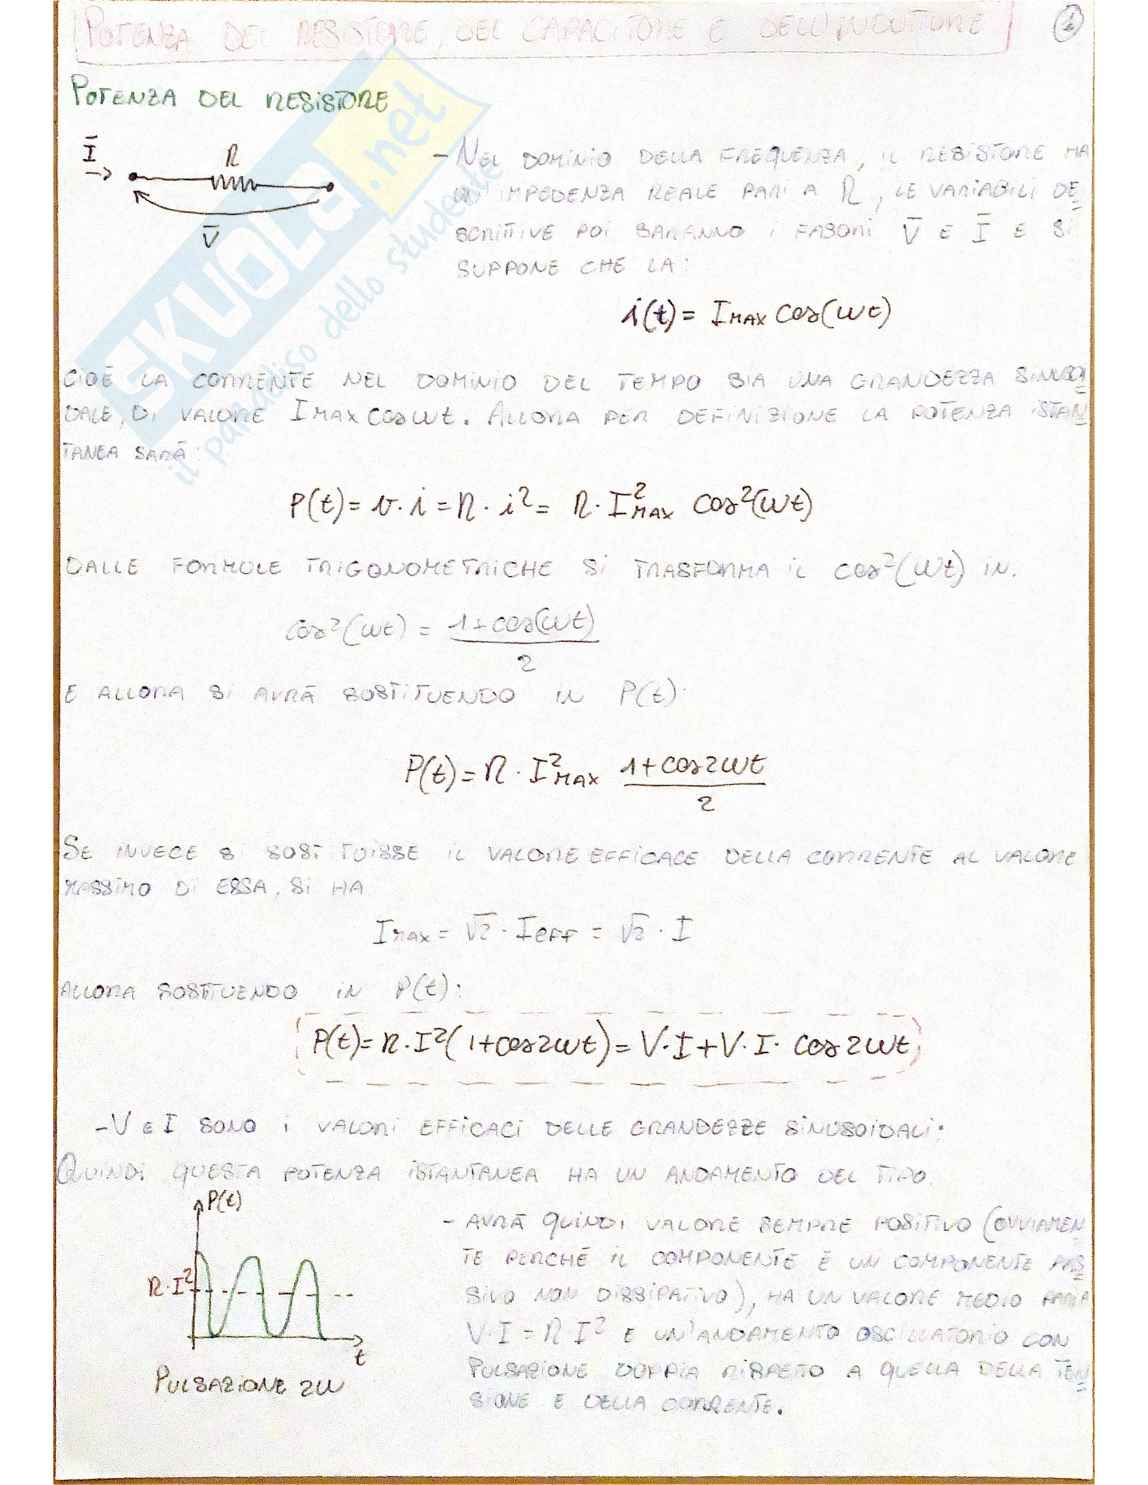 POTENZA DEL RESISTORE, DEL CAPACITORE E DELL'INDUTTORE
1
POTENZA DEL RESISTORE
Ī
R
V̄
- NEL DOMINIO DELLA FREQUENZA, IL RESISTORE HA
UN IMPEDENZA REALE PARI A R, LE VARIABILI DE
SCRITTIVE POI SARANNO I FASORI V̄ E Ī E SI
SUPPONE CHE LA:
i(t) = I MAX cos(ωt)
CIOÈ LA CORRENTE NEL DOMINIO DEL TEMPO SIA UNA GRANDEZZA SINUSOI
DALE, DI VALORE I MAX cosωt. ALLORA PER DEFINIZIONE LA POTENZA ISTAN
TANEA SARÀ:
P(t) = v·i = R·i² = R·I²MAX cos²(ωt)
DALLE FORMULE TRIGONOMETRICHE SI TRASFORMA IL cos²(ωt) IN.
cos²(ωt) = 1+cos(ωt) / 2
E ALLORA SI AVRÀ SOSTITUENDO IN P(t):
P(t) = R·I²MAX 1+cos2ωt / 2
SE INVECE SI SOSTITUISSE IL VALORE EFFICACE DELLA CORRENTE AL VALORE
MASSIMO DI ESSA, SI HA
IMAX = √2·Ieff = √2·I
ALLORA SOSTITUENDO IN P(t):
P(t) = R·I²(1+cos2ωt) = V·I+V·I·cos2ωt
- V E I SONO I VALORI EFFICACI DELLE GRANDEZZE SINUSOIDALI;
QUINDI QUESTA POTENZA ISTANTANEA HA UN ANDAMENTO DEL TIPO.
P(t)
R·I²
t
PULSAZIONE 2ω
- AVRÀ QUINDI VALORE SEMPRE POSITIVO (OVVIAMEN
TE PERCHÉ IL COMPONENTE È UN COMPONENTE PAS
SIVO NON DISSIPATIVO), HA UN VALORE MEDIO PARI A
V·I = R I² E UN'ANDAMENTO OSCILLATORIO CON
PULSAZIONE DOPPIA RISPETTO A QUELLA DELLA TEN
SIONE E DELLA CORRENTE.
SKUOLA.net
il paradiso dello studente